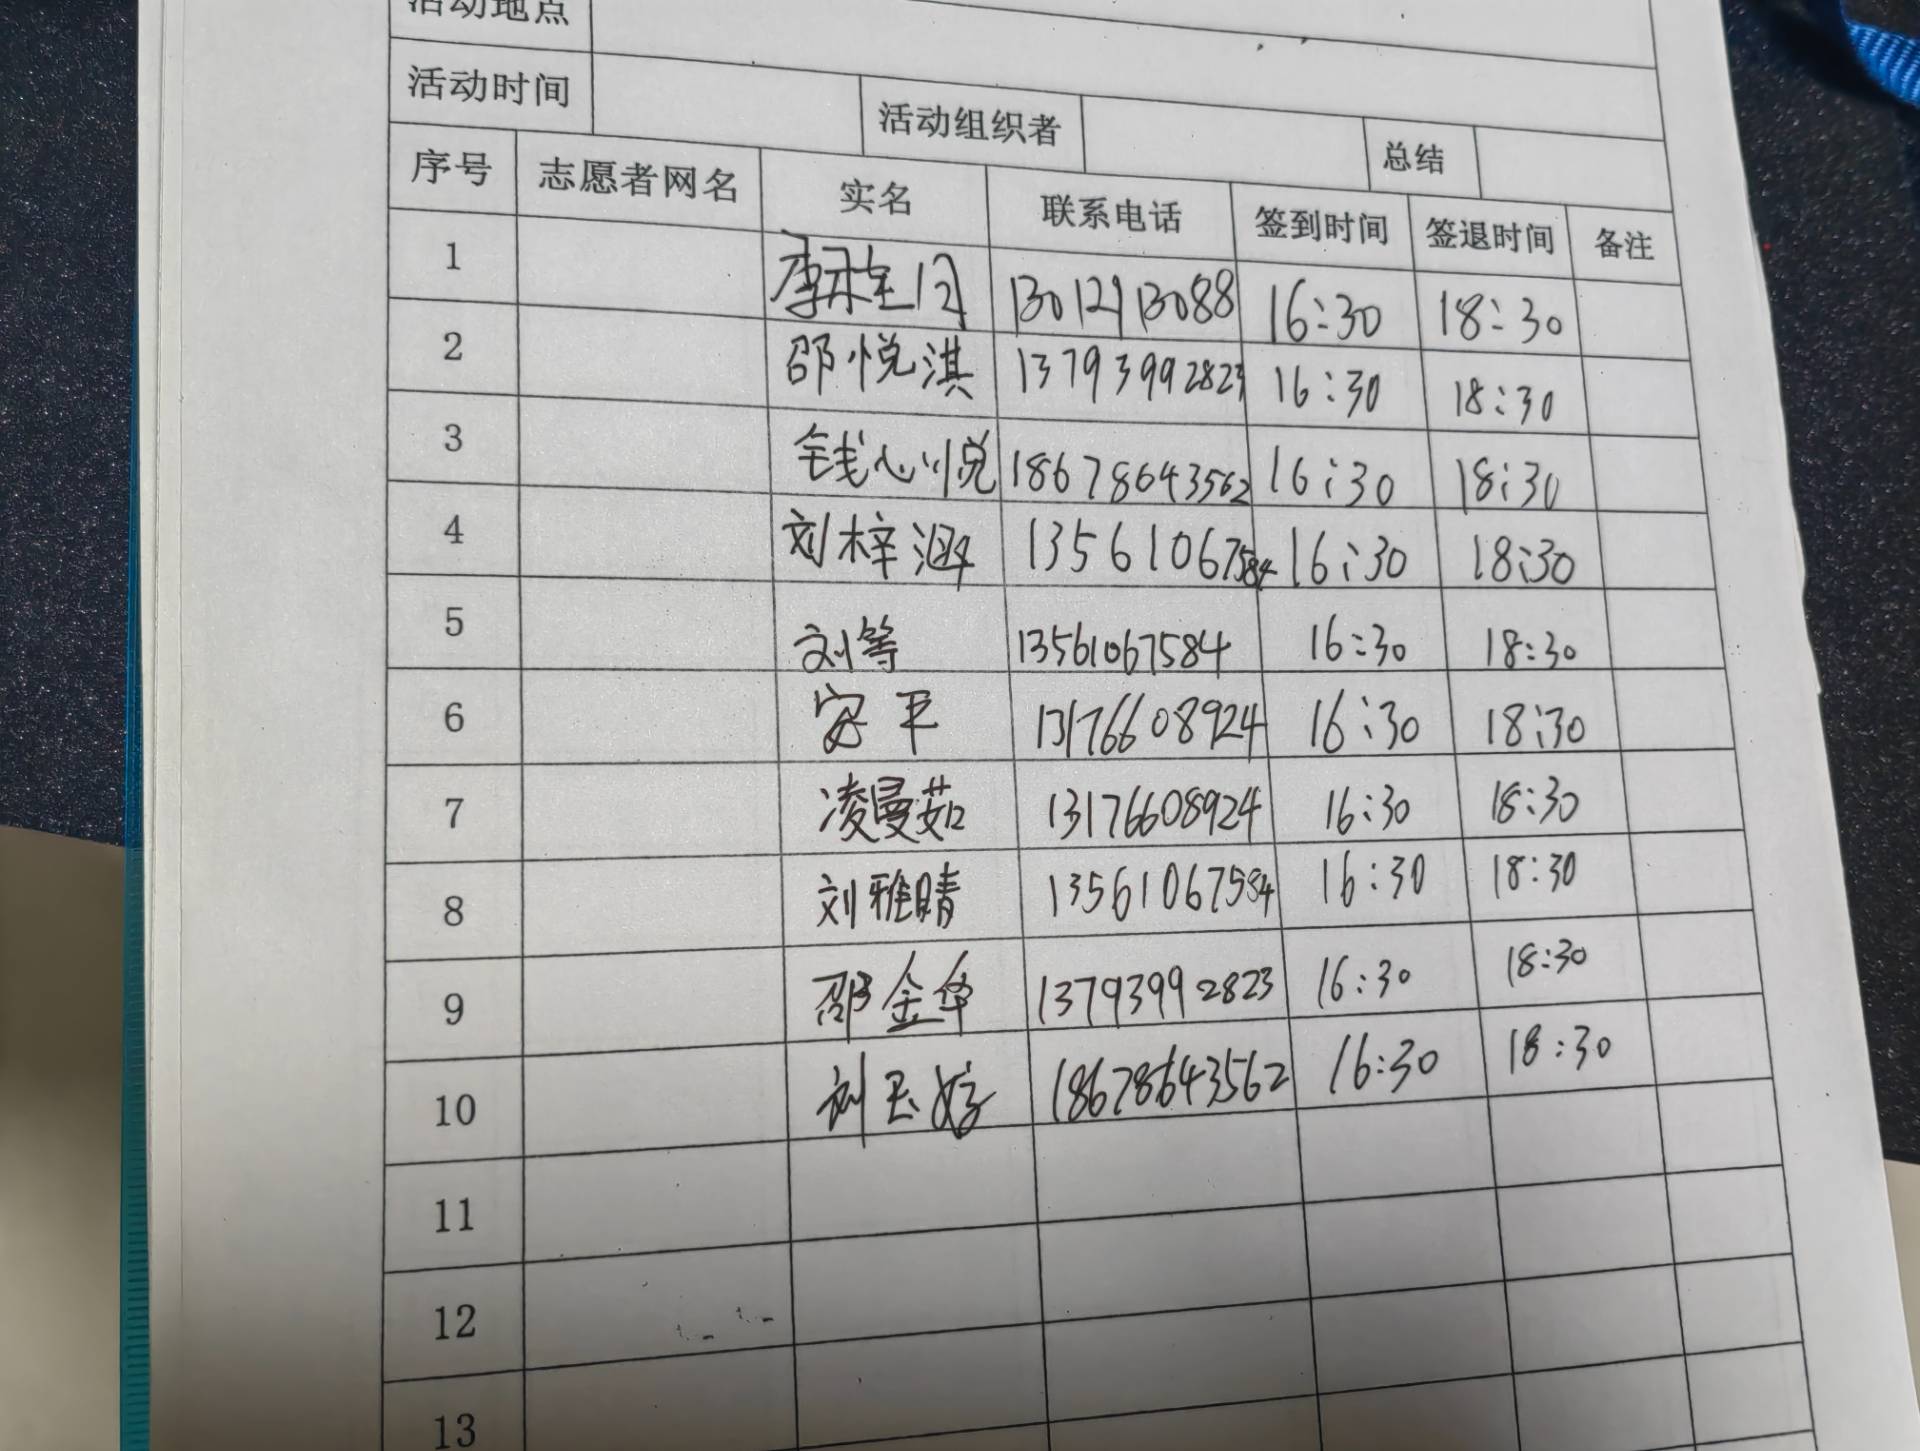 活动地点
活动时间 活动组织者 总结
序号 志愿者网名 实名 联系电话 签到时间 签退时间 备注
1 13012113088 16:30 18:30
2 邵悦淇 13793992823 16:30 18:30
3 钱心悦 18678643562 16:30 18:30
4 刘梓涵 13561067584 16:30 18:30
5 刘等 13561067584 16:30 18:30
6 安平 13176608924 16:30 18:30
7 凌曼茹 13176608924 16:30 18:30
8 刘雅晴 13561067584 16:30 18:30
9 邵金华 13793992823 16:30 18:30
10 刘玉婷 18678643562 16:30 18:30
11
12
13